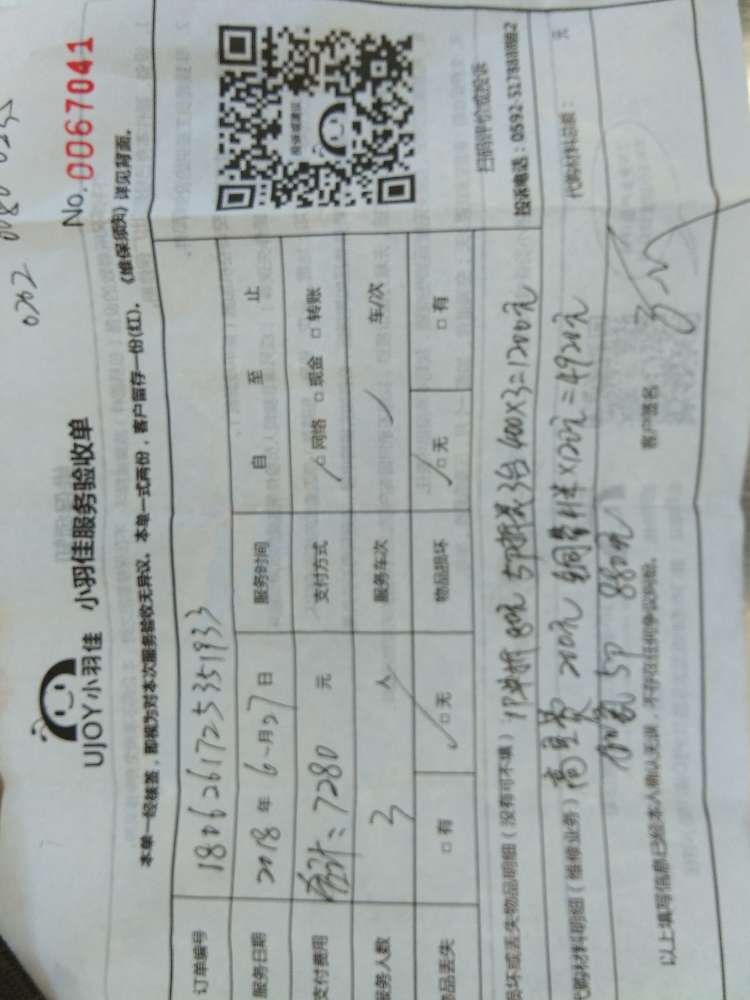 0202
No.0067041
UJOY小羽佳 小羽佳服务验收单
本单一经核盖，即视为对本次服务验收无异议。本单一式两份，客户留存一份(红)。《维保须知》详见背面。
订单编号 1806261725351933
服务日期 2018年6月27日 服务时间 自 至 止
支付费用 合计：7280 元 支付方式 □网络 □现金 □转账
服务人数 3 人 服务车次 车/次
物品丢失 □有 □无 物品损坏 □无 □有
投诉或建议
扫码评价或投诉
投诉电话：0592-5178888转2
损坏或丢失物品明细（没有可不填） 1P单拆 80元 5P拆装3台 400X3=1200元
代购材料明细（维修业务） 高空费 200元 铜管41米X120元=4920元
代购材料总额： 元
加氟5P 880元
以上填写信息已经本人确认无误，不存在任何争议纠纷。 客户签名：